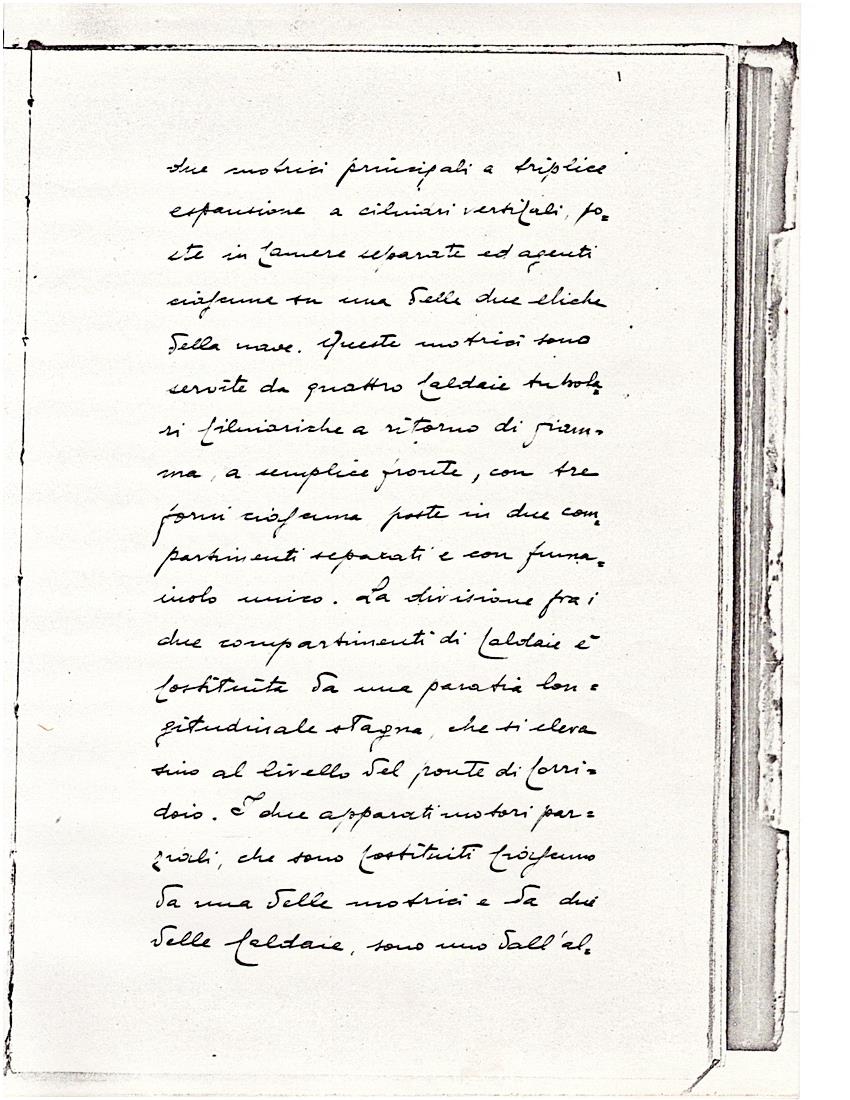 due motrici principali a triplice
espansione a cilindri verticali, po=
ste in Camere separate ed agenti
ciascuna su una delle due eliche
della nave. Queste motrici sono
servite da quattro Caldaie tubola=
ri Cilindriche a ritorno di fiam=
ma, a semplice fronte, con tre
forni ciascuna poste in due com=
partimenti separati e con fuma=
iuolo unico. La divisione fra i
due compartimenti di Caldaie è
Costituita da una paratia lon=
gitudinale stagna, che si eleva
sino al livello del ponte di Corri=
doio. I due apparati motori par=
ziali, che sono Costituiti Ciascuno
da una delle motrici e da due
delle Caldaie, sono uno dall'al=